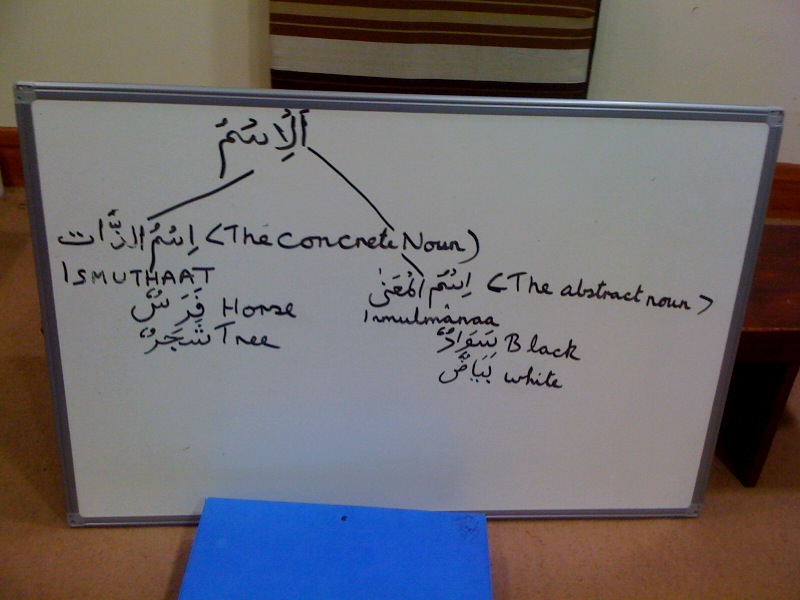 أَلْإِسْمُ
اِسْمُ الذَّات (The concrete Noun)
ISMUTHAAT
فَرَسٌ Horse
شَجَرٌ Tree
اِسْمُ الْمَعَنىٰ (The abstract noun)
Ismulmànaa
سَوَادٌ Black
بَيَاضٌ white